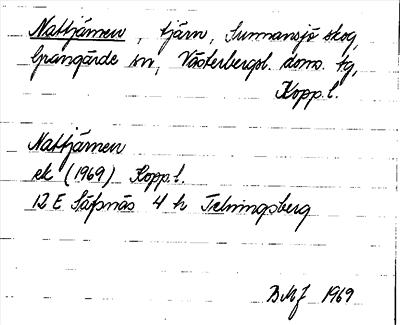 Nattjärnen, tjärn, Sunnansjö skog,
Grangärde sn, Västerbergsl. doms. tg,
Kopp.l.
Nattjärnen
ek (1969) Kopp.l.
12 E Säfsnäs 4 h
BMJ 1969